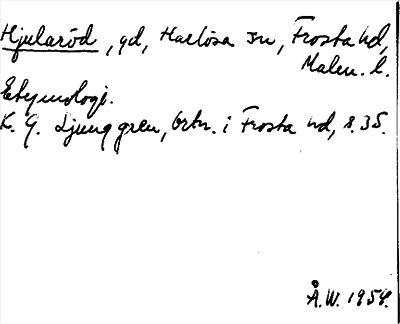 Hjularöd, gd, Harlösa sn, Frosta hd,
Malm. l.
Etymologi.
K. G. Ljunggren, Ortn. i Frosta hd, s. 35.
Å.W. 1954.